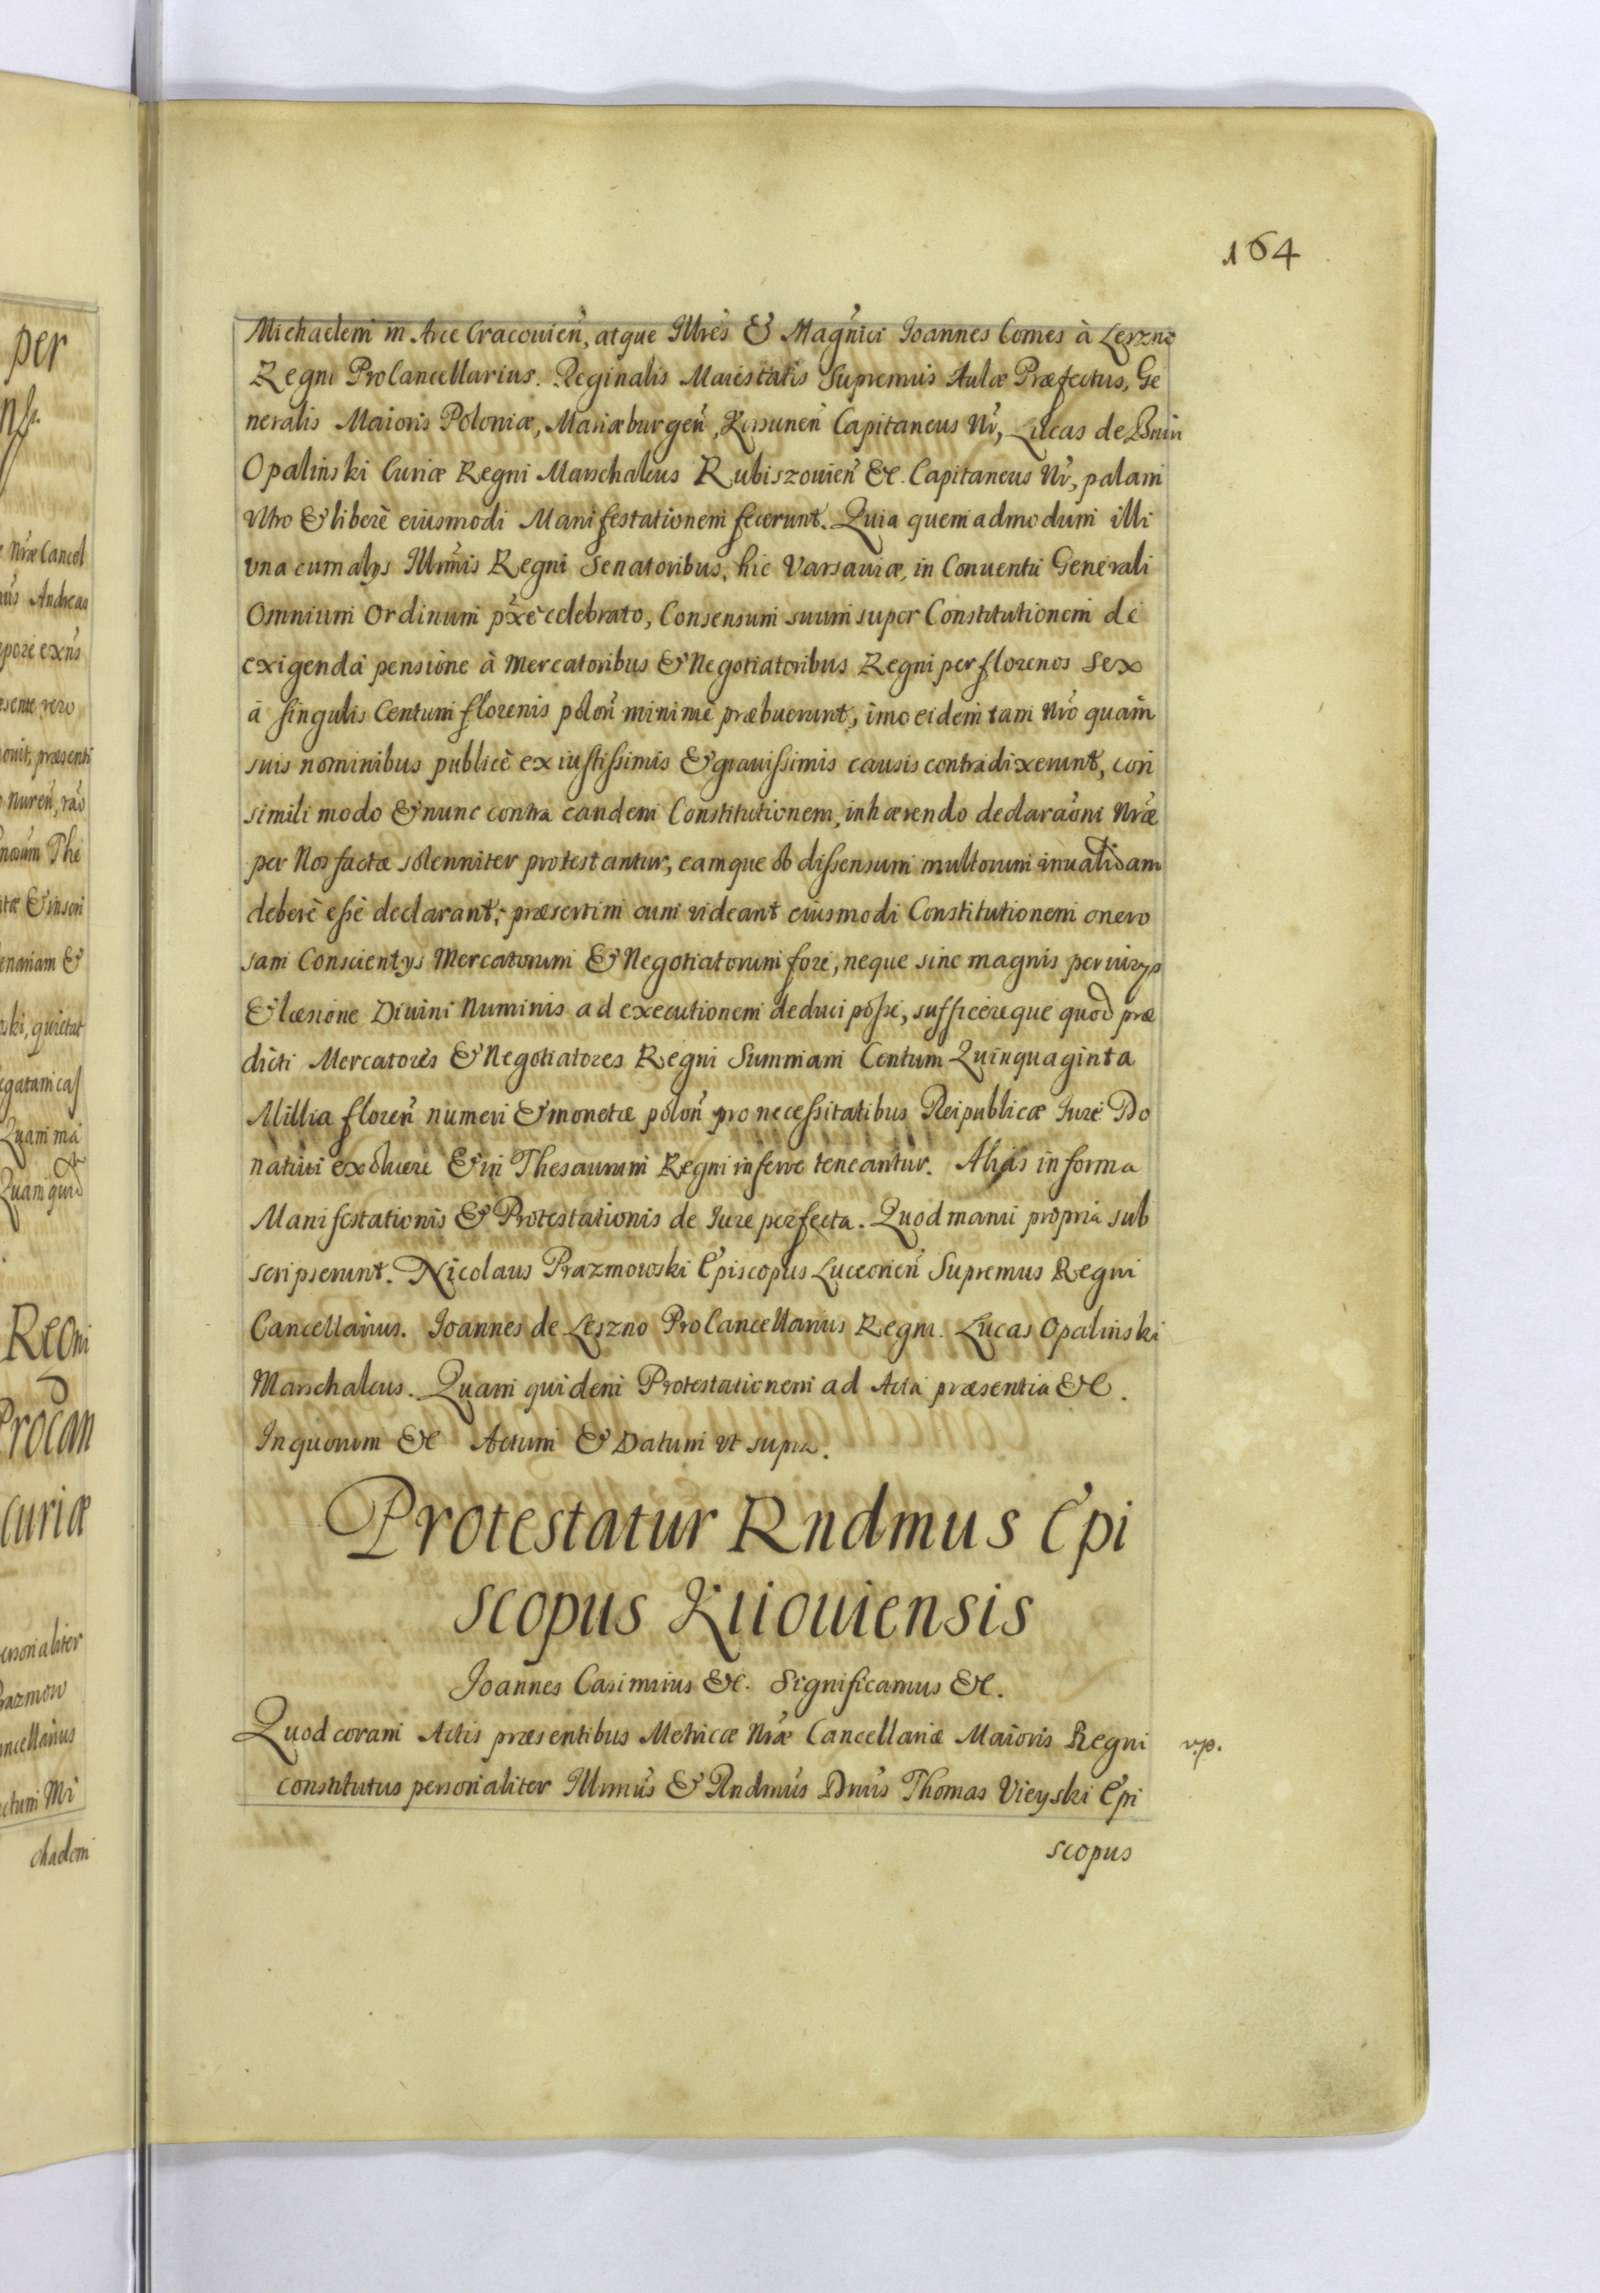 164
Michaelem in Arce Cracouien̄, atque Illres & Magnici Ioannes Comes à Leszno
Regni ProCancellarius. Reginalis Maiestatis Supremus Aulæ Præfectus, Ge
neralis Maioris Poloniæ, Mariæburgen̄, Korsunen̄ Capitaneus Nr̄, Lucas de Bnin
Opalinski Curiæ Regni Marschalcus Rubiszouien̄ &c. Capitaneus Nr̄, palam
vltro & liberè eiusmodi Manifestationem fecerunt. Quia quemadmodum illi
vna cum alys Illmis Regni Senatoribus, hic Varsauiæ, in Conuentu Generali
Omnium Ordinum pxe celebrato, Consensum suum super Constitutionem de
exigenda pensione à Mercatoribus & Negotiatoribus Regni per florenos Sex
à singulis Centum florenis polon̄ minimè præbuerunt, imo eidem tam Nr̄o quàm
suis nominibus publicè ex iustissimis & grauissimis causis contradixerunt, con
simili modo & nunc contra eandem Constitutionem, inhærendo declarao̅ni Nr̄æ
per Nos factæ solenniter protestantur, eamque ob dissensum multorum inualidam
debere esse declarant, præsertim cum videant eiusmodi Constitutionem onero
sam Conscientys Mercatorum & Negotiatorum fore, neque sine magnis periurys
& læsione Diuini Numinis ad executionem deduci posse, sufficereque quod præ
dicti Mercatores & Negotiatores Regni Summam Centum Quinquaginta
Millia floren̄ numeri & monetæ polon̄ pro necessitatibus Reipublicæ Iure Do
natiui exoluere & in Thesaurum Regni inferre teneantur. Alias in forma
Manifestationis & Protestationis de Iure perfecta. Quod manu propria sub
scripserunt. Nicolaus Prazmowski Episcopus Luceorien̄ Supremus Regni
Cancellarius. Ioannes de Leszno ProCancellarius Regni. Lucas Opalinski
Marschalcus. Quam quidem Protestationem ad Acta præsentia &c.
In quorum &c Actum & Datum vt supra.
Protestatur Rndmus Epi
scopus Kiiouiensis
Ioannes Casimirus &c. Significamus &c.
Quod coram Actis præsentibus Metricæ Nr̄æ Cancellariæ Maioris Regni v.p.
constitutus personaliter Illmus & Rndmus Dnus Thomas Vieyski Epi
scopus